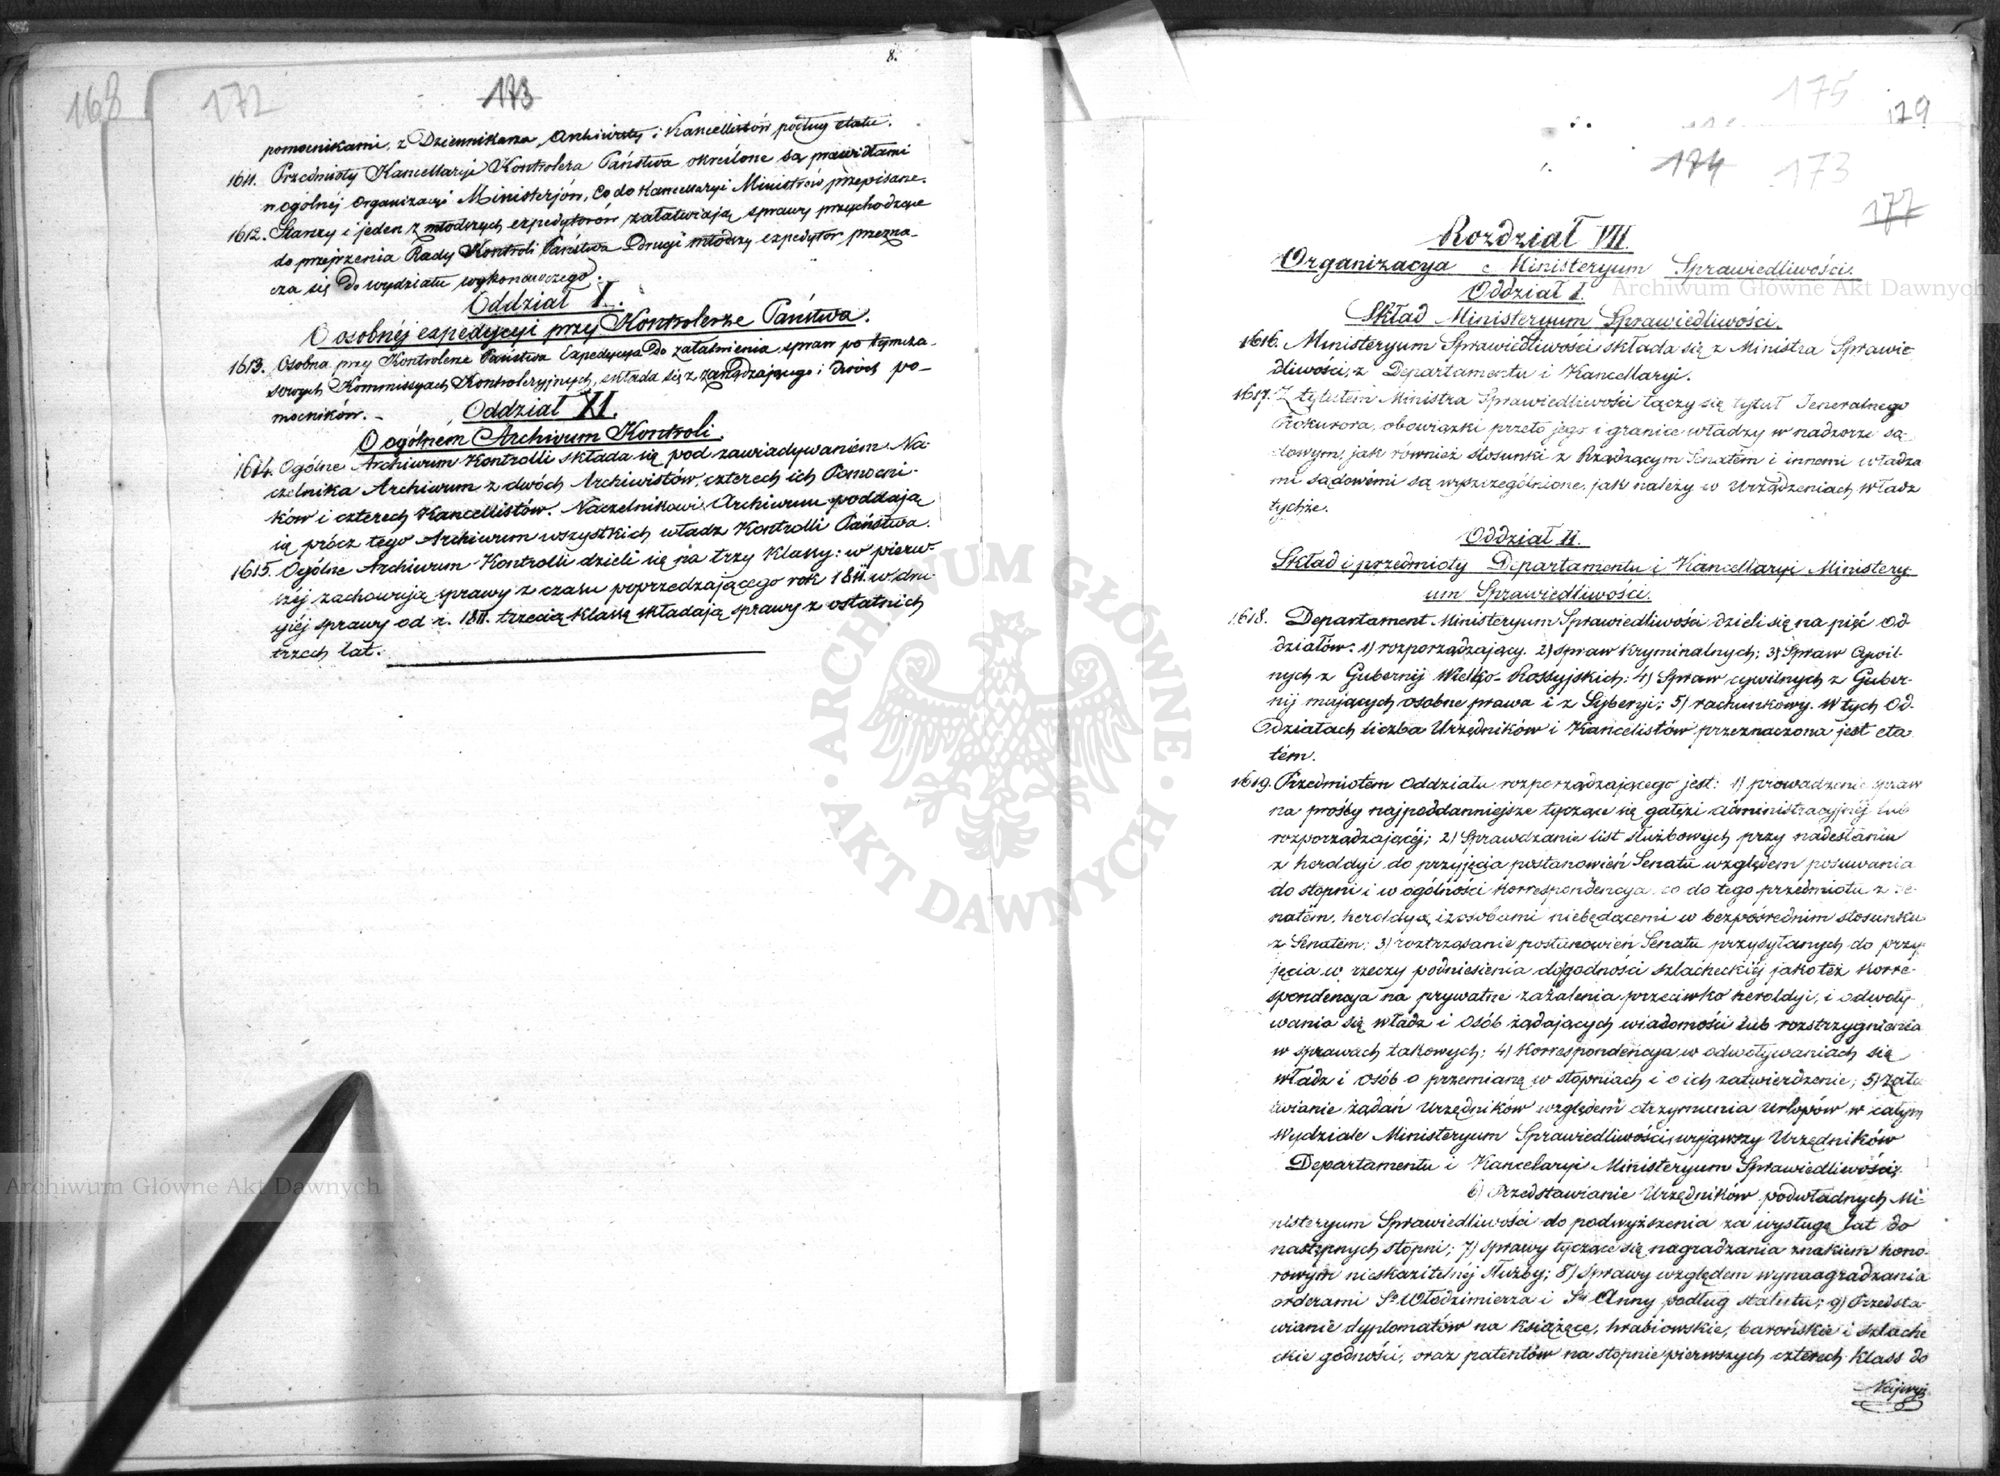 8.
168
172
173
pomocnikami, z Dziennikarza, Archiwisty i Kancellistów podług etatu.
1611. Przedmioty Kancellaryi Kontrolera Państwa określone są prawidłami
w ogólnej Organizacyi Ministerjów, co do Kancellaryi Ministrów przepisane.
1612. Starszy i jeden z młodszych expedytorów załatwiają sprawy przychodzące
do przejrzenia Rady Kontroli Państwa drugi młodszy expedytor przezna-
cza się do wydziału wykonawczego.
Oddział X.
O osobnéj expedycyi przy Kontrolerze Państwa.
1613. Osobna przy Kontrolerze Państwa Expedycya do załatwienia spraw po tymcza-
sowych Kommissyach Kontroleryjnych, składa się z zarządzającego i dwóch po-
mocników. -
Oddział XI.
O ogólném Archiwum Kontroli.
1614. Ogólne Archiwum Kontrolli składa się pod zawiadywaniem Na-
czelnika Archiwum z dwóch Archiwistów, czterech ich Pomocni-
ków i czterech Kancellistów. Naczelnikowi Archiwum poddają
się prócz tego Archiwum wszystkich władz Kontrolli Państwa.
1615. Ogólne Archiwum Kontrolli dzieli się na trzy klassy: w pierw-
széj zachowują sprawy z czasu poprzedzającego rok 1811. w dru-
giéj sprawy od r. 1811. trzecią klassę składają sprawy z ostatnich
trzech lat.
175
179
174
173
177
Rozdział VII.
Organizacya Ministeryum Sprawiedliwości.
Oddział I.
Skład Ministeryum Sprawiedliwości.
1616. Ministeryum Sprawiedliwości składa się z Ministra Sprawie-
dliwości, z Departamentu i Kancellaryi.
1617. Z tytułem Ministra Sprawiedliwości łączy się tytuł Jeneralnego
Prokurora, obowiązki przeto jego i granice władzy w nadzorze są-
dowym, jak również stosunki z Rządzącym Senatem i innemi władza
mi sądowémi są wyszczególnione, jak należy w Urządzeniach władz
tychże.
Oddział II.
Skład i przedmioty Departamentu i Kancellaryi Ministery-
um Sprawiedliwości.
1618. Departament Ministeryum Sprawiedliwości dzieli się na pięć Od
działów: 1) rozporządzający. 2) spraw kryminalnych; 3) Spraw Cywil-
nych z Gubernij Wielko-Rossyjskich; 4) Spraw cywilnych z Guber-
nij mających osobne prawa i z Syberyi; 5) rachunkowy. W tych Od-
Działach liczba Urzędników i Kancelistów przeznaczona jest eta
tém.
1619. Przedmiotém Oddziału rozporządzającego jest: 1) prowadzenie spraw
na prośby najpoddanniejsze tyczące się gałęzi administracyjnéj lub
rozporządzającéj; 2) Sprawdzanie list służbowych przy nadesłaniu
z heroldyi do przyjęcia postanowień Senatu względem posuwania
do stopni i w ogólności korrespondencya co do tego przedmiotu z Se-
natém, heroldyą i z osobami niebędącemi w bezpośrednim stosunku
z Senatém; 3) roztrząsanie postanowień Senatu przysyłanych do przy-
jęcia w rzeczy podniesienia do godności szlacheckiéj jakoteż korre-
spondencya na prywatne zażalenia przeciwko heroldyi, i odwoły-
wania się władz i osób żądających wiadomości lub rozstrzygnienia
w sprawach takowych; 4) Korrespondencya w odwoływaniach się
władz i osób o przemianę w stopniach i o ich zatwierdzenie; 5) Zała
twianie żądań Urzędników względem otrzymania Urlopów w całym
Wydziale Ministeryum Sprawiedliwości, wyjąwszy Urzędników
Departamentu i Kancelaryi Ministeryum Sprawiedliwości;
6) Przedstawianie Urzędników podwładnych Mi-
nisteryum Sprawiedliwości do podwyższenia za wysługę lat do
następnych stopni; 7) sprawy tyczące się nagradzania znakiem hono-
rowym nieskazitelnéj służby; 8) sprawy względem wynaagradzania
orderami Sº Włodzimierza i Sej Anny podług statutu; 9) Przedsta-
wianie dyplomatów na książęce, hrabiowskie, barońskie i szlache
ckie godności, oraz patentów na stopnie pierwszych czterech klass do
Najwyż
Archiwum Główne Akt Dawnych
Archiwum Główne Akt Dawnych
ARCHIWUM GŁÓWNE AKT DAWNYCH